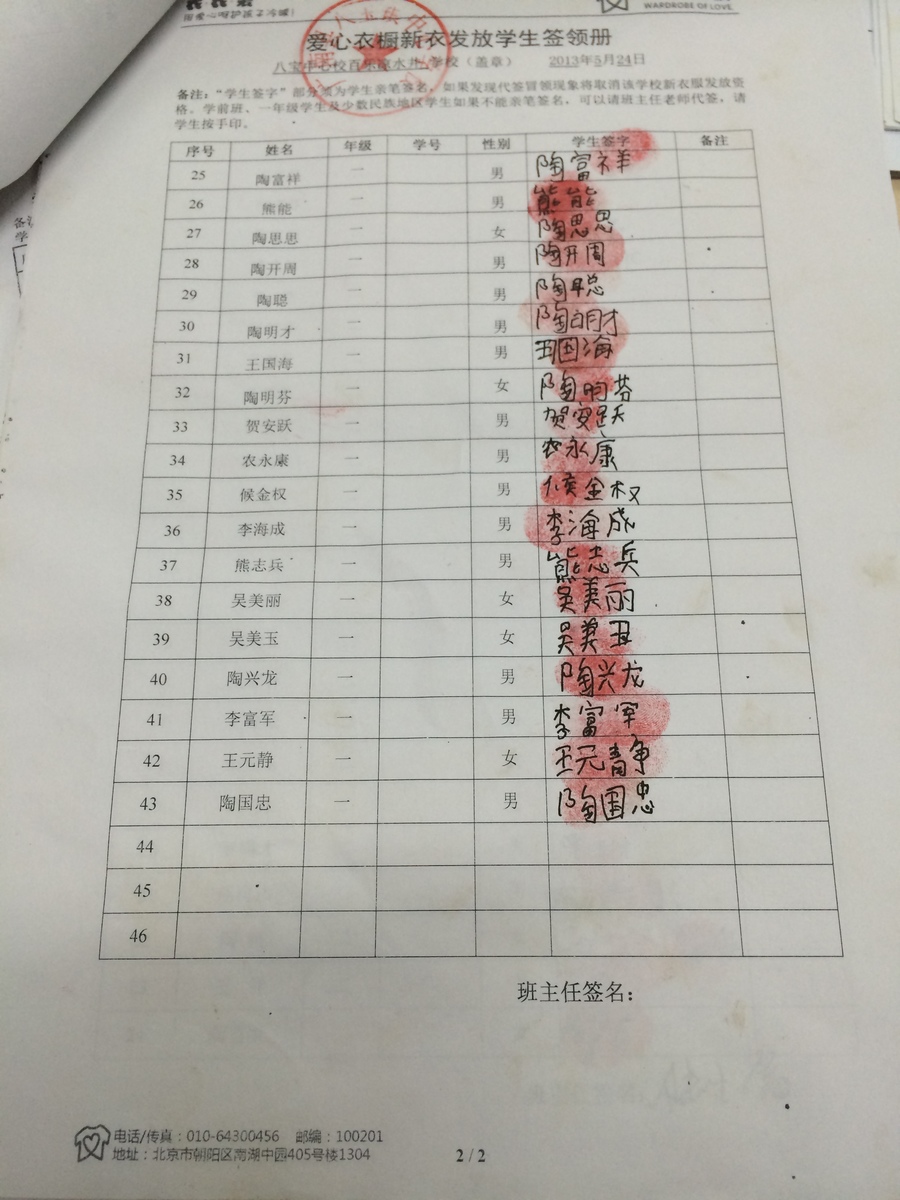 用爱心呵护孩子冷暖!
WARDROBE OF LOVE
爱心衣橱新衣发放学生签领册
八宝中心校百乐凉水井 学校（盖章） 2013年5月24日
备注：“学生签字”部分须为学生亲笔签名，如果发现代签冒领现象将取消该学校新衣服发放资
格。学前班、一年级学生及少数民族地区学生如果不能亲笔签名，可以请班主任老师代签，请
学生按手印。
序号 姓名 年级 学号 性别 学生签字 备注
25 陶富祥 一 男 陶富祥
26 熊能 一 男 熊能
27 陶思思 一 女 陶思思
28 陶开周 一 男 陶开周
29 陶聪 一 男 陶聪
30 陶明才 一 男 陶明才
31 王国海 一 男 王国海
32 陶明芬 一 女 陶明芬
33 贺安跃 一 男 贺安跃
34 农永康 一 男 农永康
35 候金权 一 男 候金权
36 李海成 一 男 李海成
37 熊志兵 一 男 熊志兵
38 吴美丽 一 女 吴美丽
39 吴美玉 一 女 吴美丑
40 陶兴龙 一 男 陶兴龙
41 李富军 一 男 李富军
42 王元静 一 女 王元静
43 陶国忠 一 男 陶国忠
44
45
46
班主任签名：
电话/传真：010-64300456 邮编：100201
地址：北京市朝阳区南湖中园405号楼1304
2 / 2